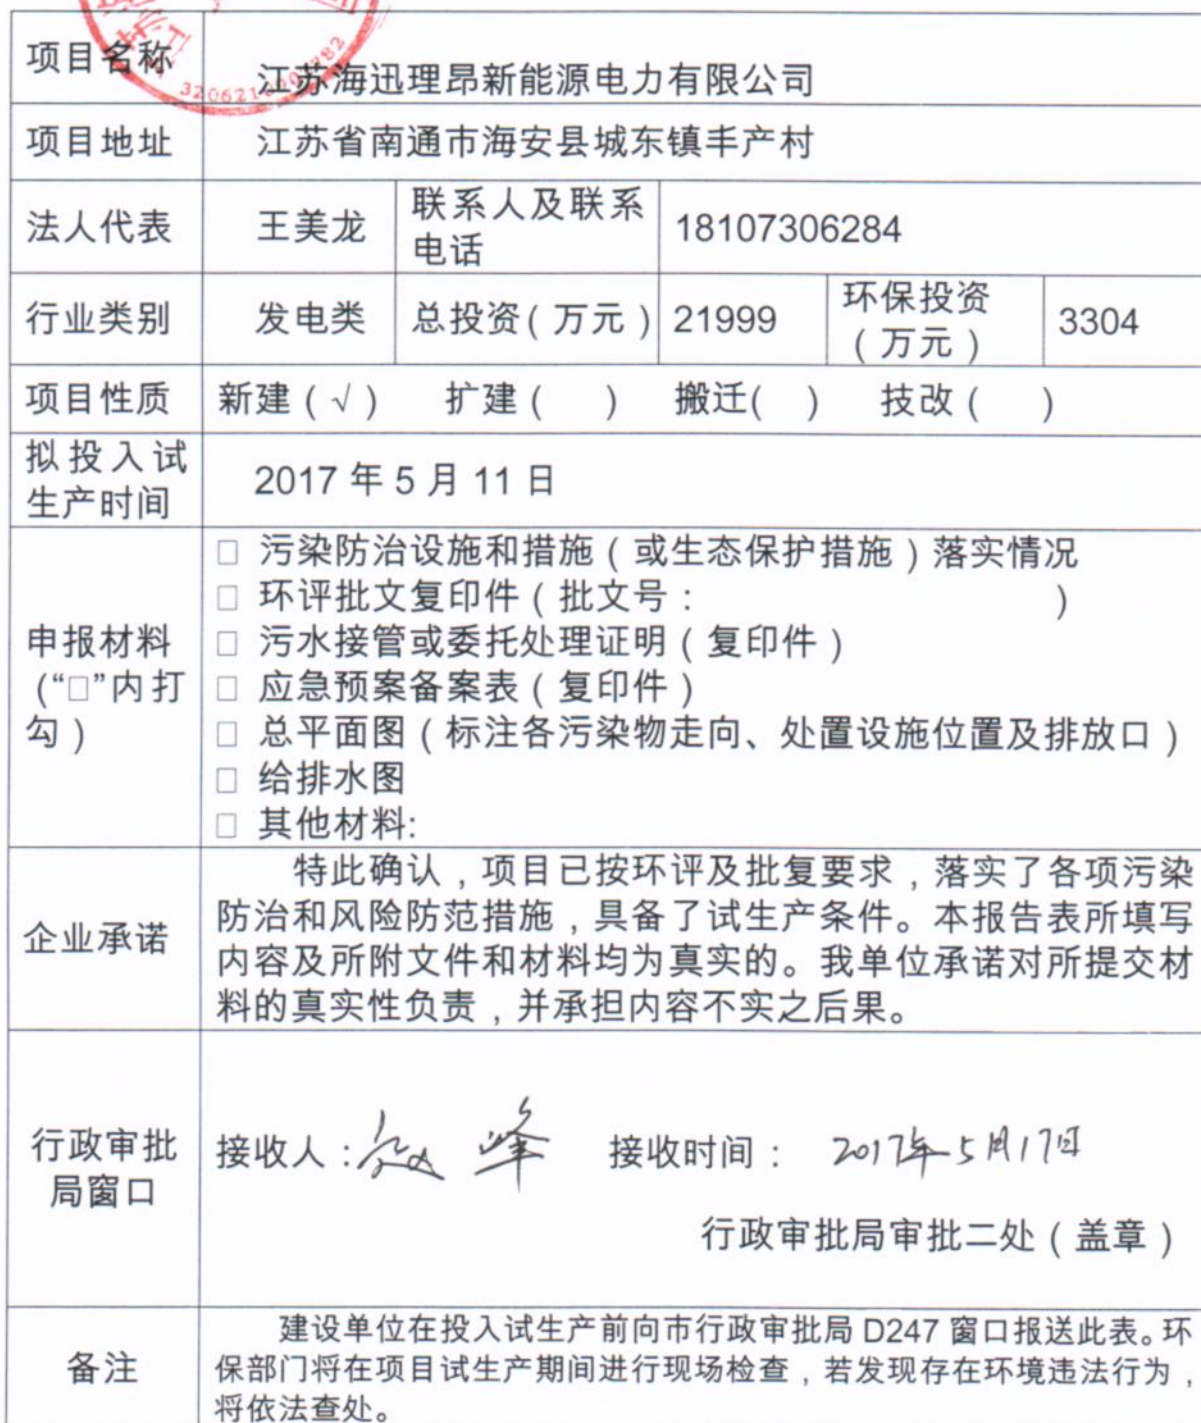 项目名称 江苏海迅理昂新能源电力有限公司
项目地址 江苏省南通市海安县城东镇丰产村
法人代表 王美龙 联系人及联系电话 18107306284
行业类别 发电类 总投资(万元) 21999 环保投资(万元) 3304
项目性质 新建(√) 扩建( ) 搬迁( ) 技改( )
拟投入试生产时间 2017年5月11日
申报材料(“□”内打勾)
□ 污染防治设施和措施(或生态保护措施)落实情况
□ 环评批文复印件(批文号: )
□ 污水接管或委托处理证明(复印件)
□ 应急预案备案表(复印件)
□ 总平面图(标注各污染物走向、处置设施位置及排放口)
□ 给排水图
□ 其他材料:
企业承诺
特此确认,项目已按环评及批复要求,落实了各项污染
防治和风险防范措施,具备了试生产条件。本报告表所填写
内容及所附文件和材料均为真实的。我单位承诺对所提交材
料的真实性负责,并承担内容不实之后果。
行政审批局窗口
接收人: 峰 接收时间: 2017年5月17日
行政审批局审批二处(盖章)
备注
建设单位在投入试生产前向市行政审批局 D247 窗口报送此表。环
保部门将在项目试生产期间进行现场检查,若发现存在环境违法行为,
将依法查处。